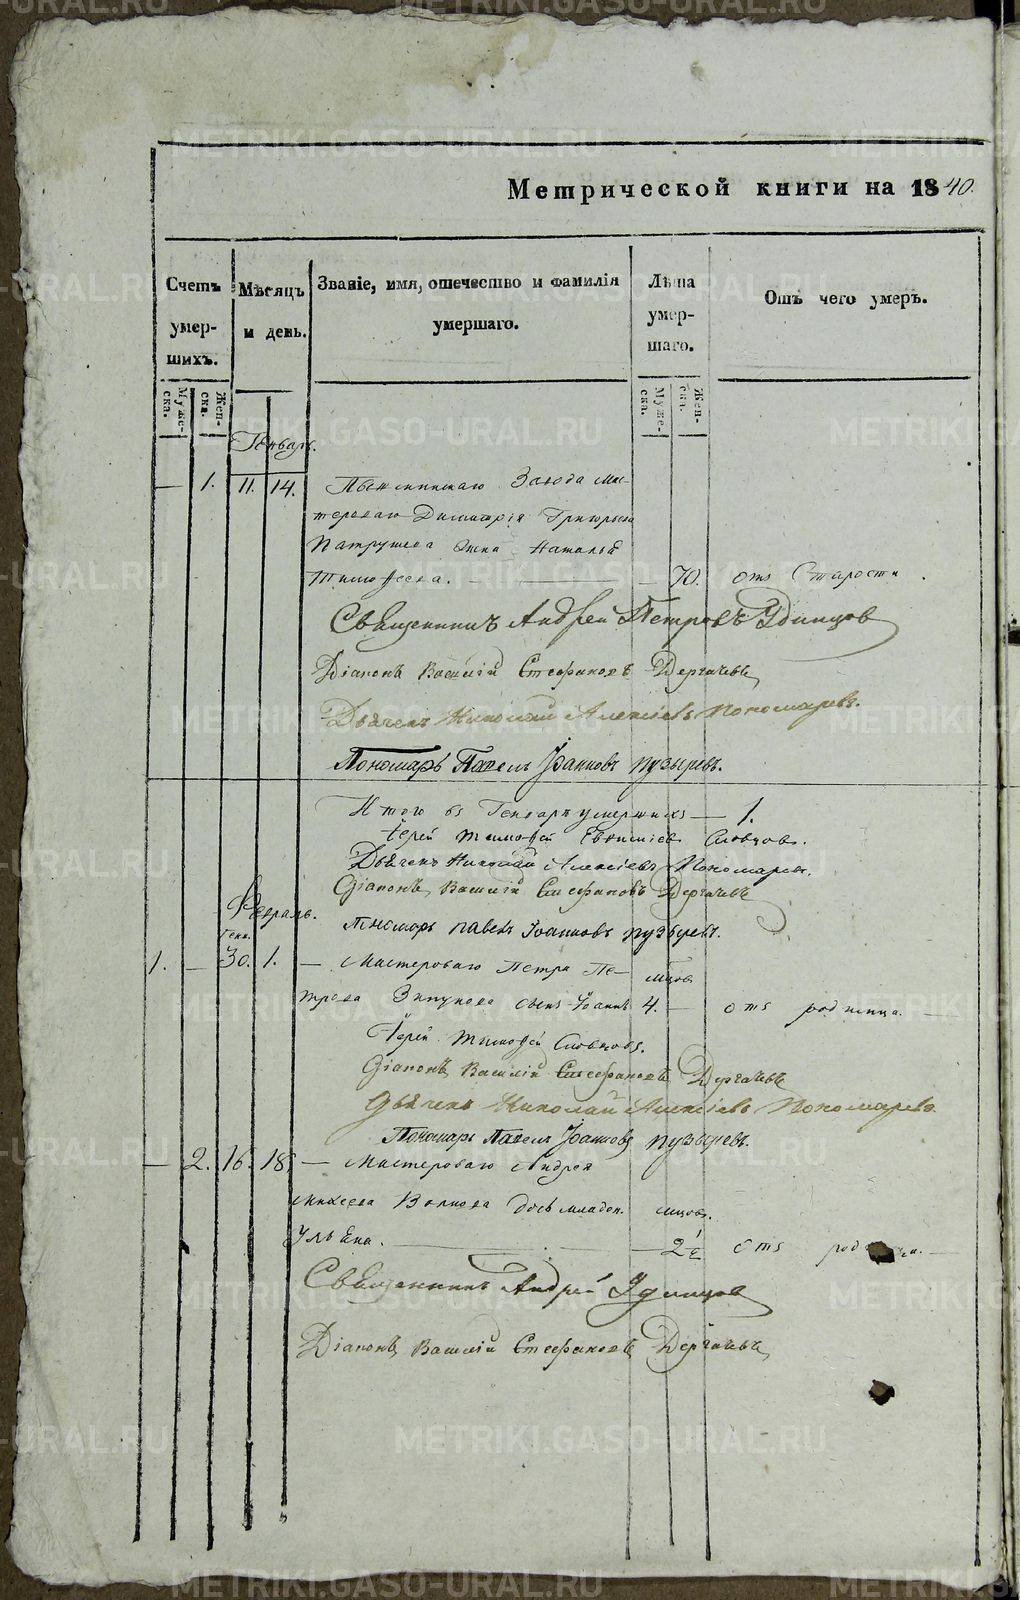 Метрической книги на 1840.
Счетъ умер-шихъ.
Муже-ска.
Жен-ска.
Мѣсяцъ и день.
Званіе, имя, отечество и фамилія умершаго.
Лѣта умер-шаго.
Муже-ска.
Жен-ска.
Отъ чего умеръ.
Генварь.
— 1. 11. 14. Завода мас-
тероваго Димитрія Григорьева
Патрушева жена Наталья
Тимофеева. — 70. отъ Старости.
Священникъ Андрей Петровъ Удинцов
Діаконъ Василій Стефановъ Дергачевъ
Дьячекъ Николай Алексіевъ Пономаревъ.
Пономарь Павелъ Іоанновъ Пузыревъ.
Итого въ Генварѣ умершихъ — 1.
Іерей Тимофей Евфиміев Словцовъ.
Дьячекъ Николай Алексіевъ Пономаревъ.
Діаконъ Василій Стефановъ Дергачевъ
Февраль.
Пномарь павелъ Іоанновъ пузыревъ.
Генв.
1. — 30. 1. — Мастероваго Петра Пе-
трова Зипунова сынъ Іоаннъ 4. мѣцов — отъ родимца. —
Іерей Тимофей Словцовъ.
Діаконъ Василій Стефановъ Дергачевъ
Дьячекъ Николай Алексіевъ Пономаревъ
Пономарь Павелъ Іоанновъ Пузыревъ.
— 2. 16. 18. — Мастероваго Андрея
Михеева Волкова дочь младен. мѣцов.
Ульяна. — 2 1/2 отъ —
Священникъ Андрей Удинцов
Діаконъ Василій Стефановъ Дергачевъ
METRIKI.GASO-URAL.RU